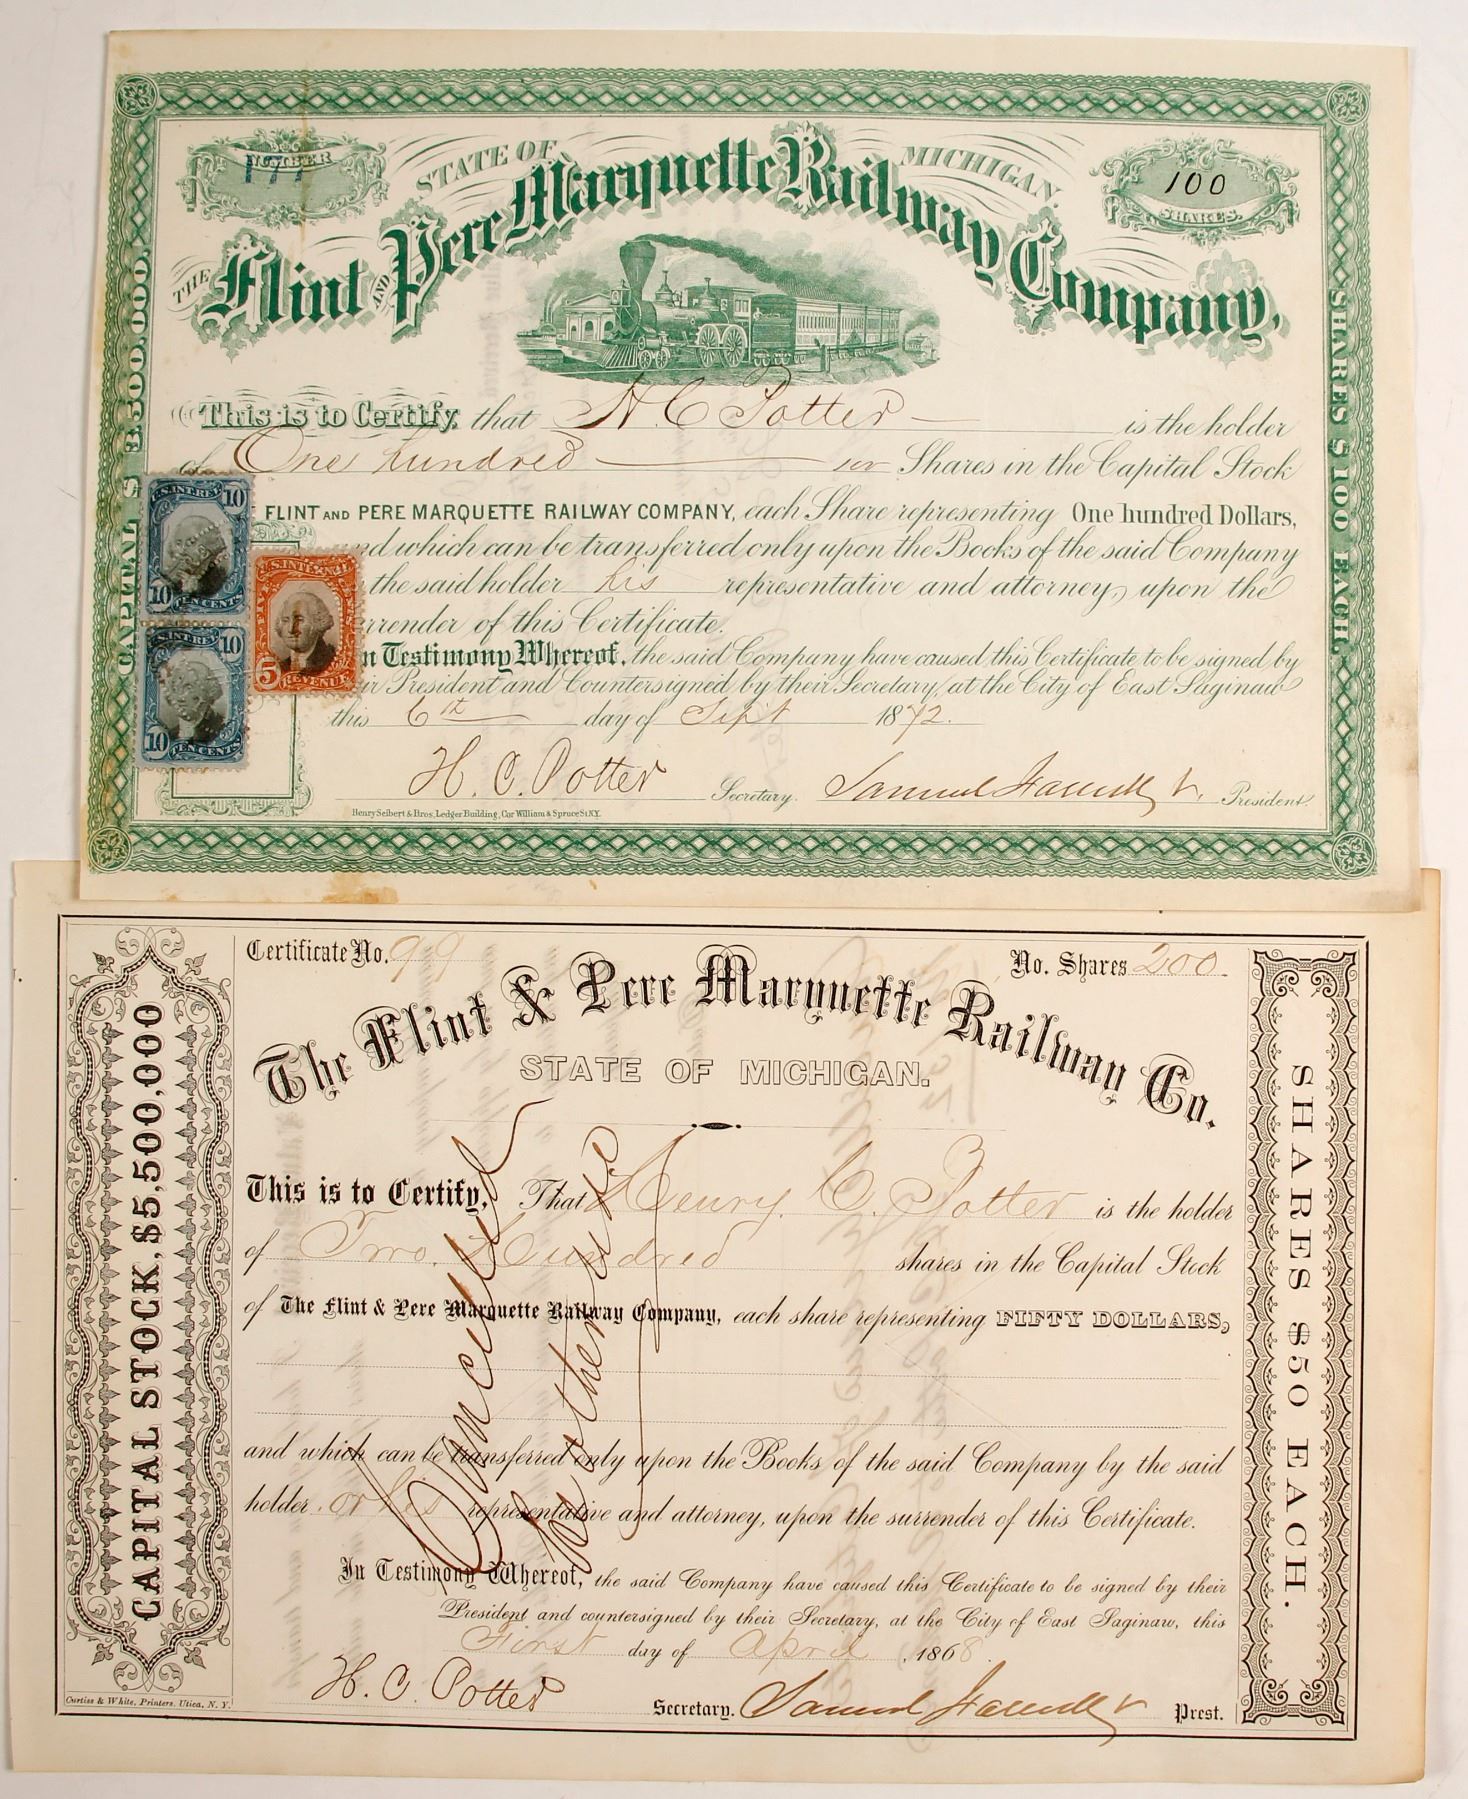 NUMBER
177
STATE OF MICHIGAN.
100
SHARES.
THE Flint AND Pere Marquette Railway Company,
This is to Certify, that H. C. Potter is the holder
of One hundred 100 Shares in the Capital Stock
FLINT AND PERE MARQUETTE RAILWAY COMPANY, each Share representing One hundred Dollars,
and which can be transferred only upon the Books of the said Company
the said holder his representative and attorney, upon the
rrender of this Certificate.
n Testimony Whereof, the said Company have caused this Certificate to be signed by
ir President and Countersigned by their Secretary, at the City of East Saginaw
this 6th day of Sept 1872.
H. C. Potter Secretary. Samuel Farwell Jr. President.
Henry Seibert & Bros, Ledger Building, Cor William & Spruce St N.Y.
CAPITAL $ 500,000.
SHARES $100 EACH.
U.S. INT. REV. 10
10 TEN CENTS
U.S. INT. REV. 10
10 TEN CENTS
U.S. INTERNAL
FIVE CENTS
5 REVENUE
Certificate No. 99
No. Shares 200
The Flint & Pere Marquette Railway Co.
STATE OF MICHIGAN.
This is to Certify, That Henry. C. Potter is the holder
of Two Hundred shares in the Capital Stock
of The Flint & Pere Marquette Railway Company, each share representing FIFTY DOLLARS,
and which can be transferred only upon the Books of the said Company by the said
holder or his representative and attorney, upon the surrender of this Certificate.
In Testimony Whereof, the said Company have caused this Certificate to be signed by their
President and countersigned by their Secretary, at the City of East Saginaw, this
First day of April, 1868.
H. C. Potter Secretary. Samuel Farwell Jr Prest.
Cancelled
CAPITAL STOCK, $5,500,000
SHARES $50 EACH.
Curtiss & White, Printers, Utica, N. Y.